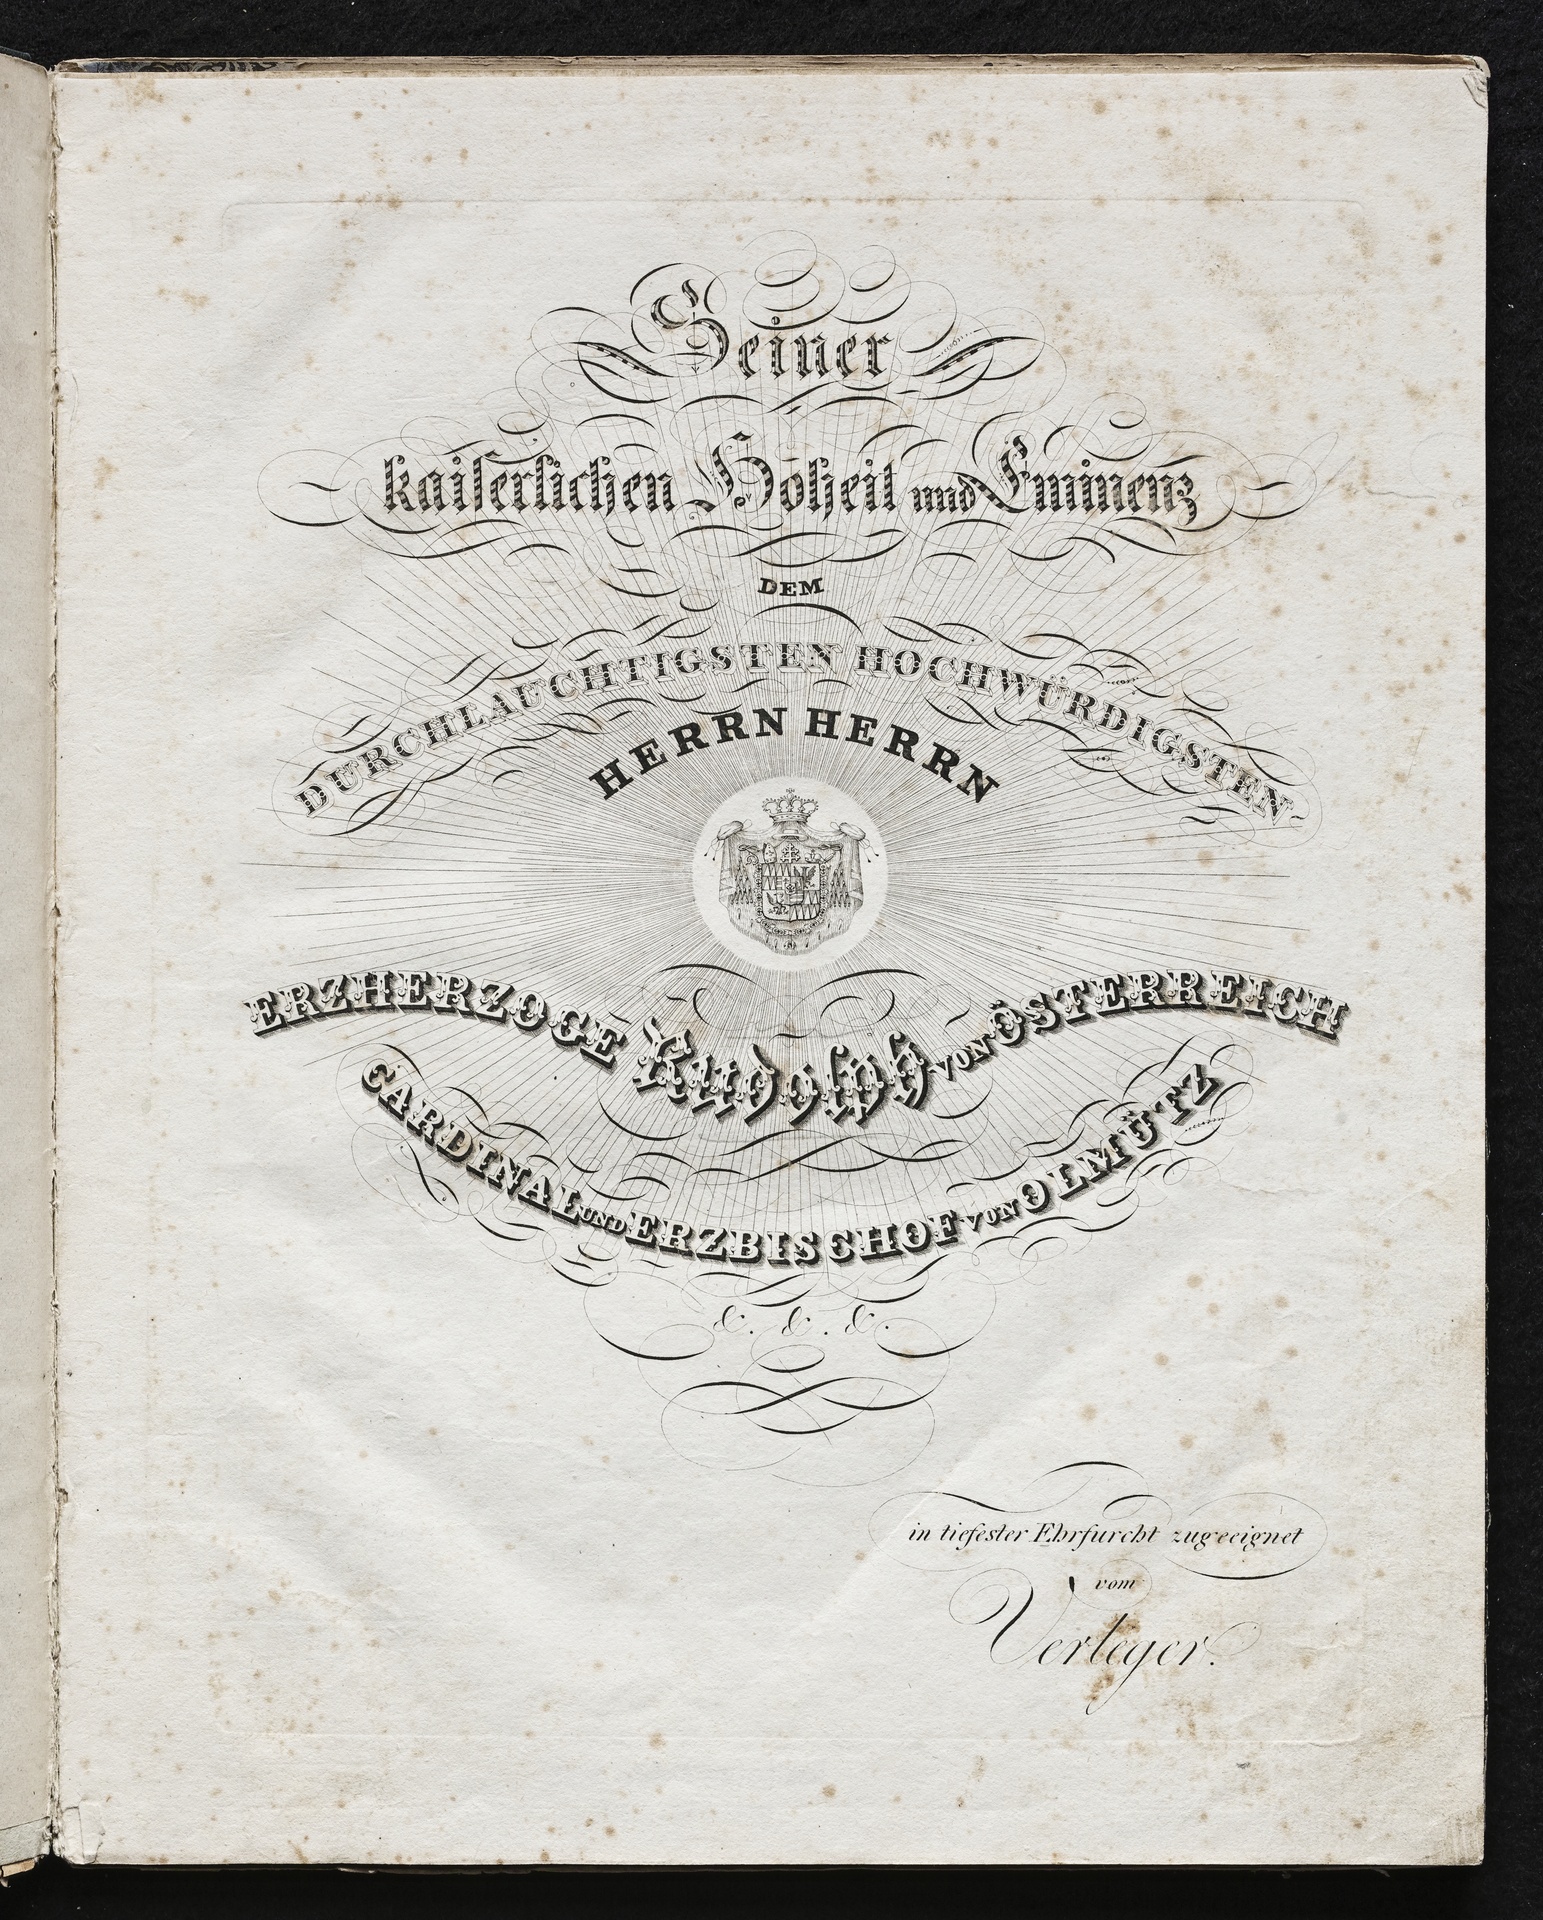 Seiner
kaiserlichen Hoheit und Eminenz
DEM
DURCHLAUCHTIGSTEN HOCHWÜRDIGSTEN
HERRN HERRN
ERZHERZOGE Rudolph VON ÖSTERREICH
CARDINAL UND ERZBISCHOF VON OLMÜTZ
&. &. &.
in tiefester Ehrfurcht zugeeignet
vom
Verleger.